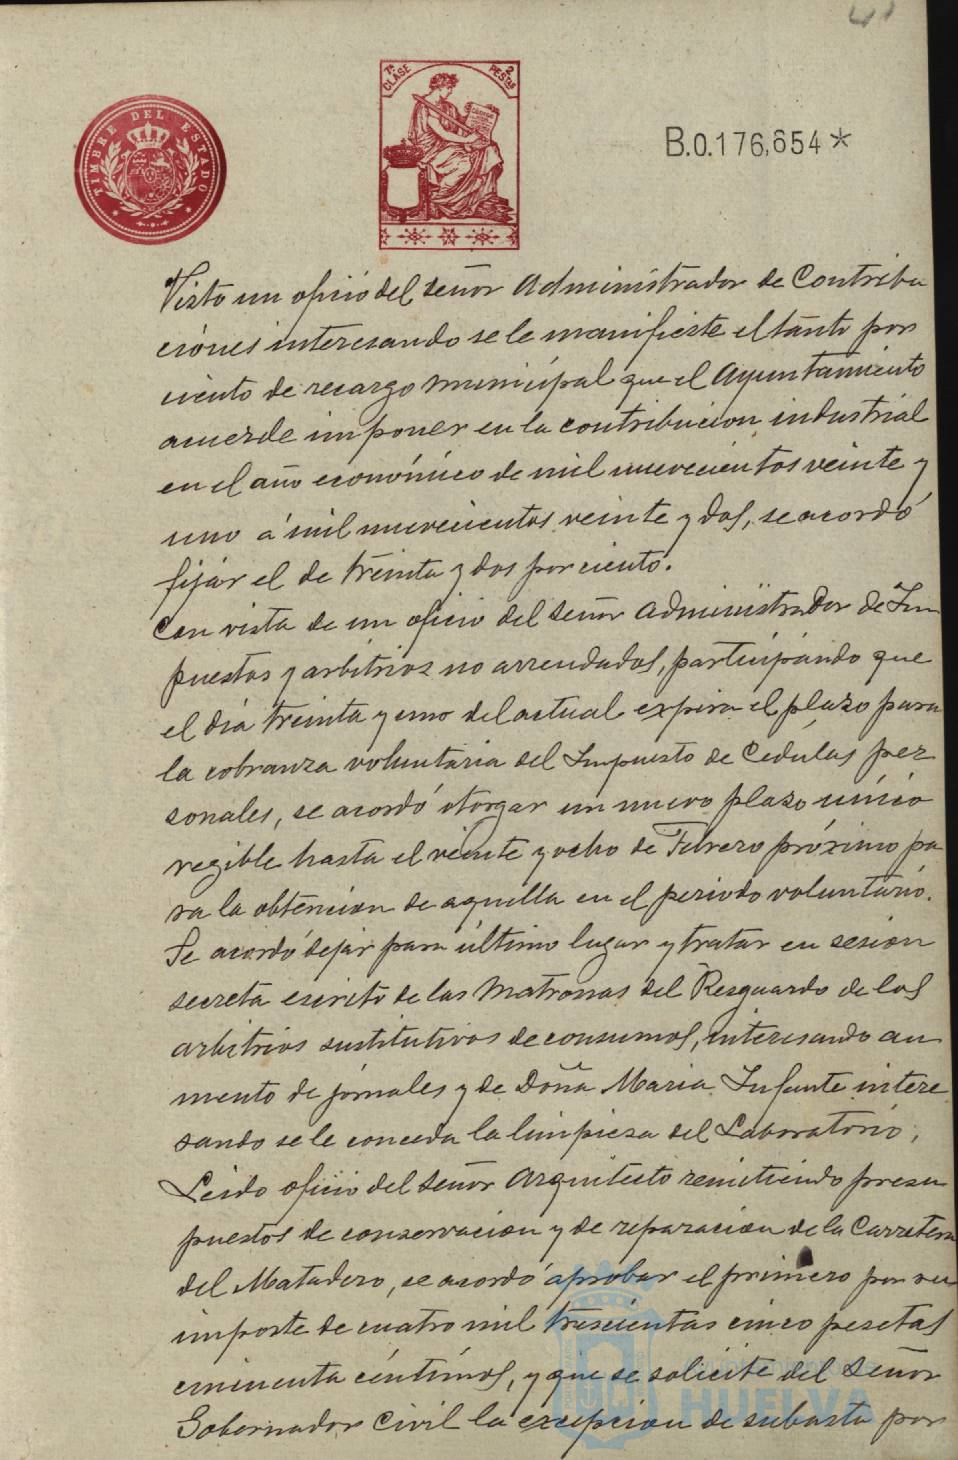 41
TIMBRE DEL ESTADO
7ª CLASE 2 PESTAS
B.0.176,654*
Visto un oficio del señor Administrador de Contribu
ciones interesando se le manifieste el tanto por
ciento de recargo municipal que el Ayuntamiento
acuerde imponer en la contribucion industrial
en el año económico de mil nuevecientos veinte y
uno á mil nuevecientos veinte y dos, se acordó
fijar el de treinta y dos por ciento.
Con vista de un oficio del señor Administrador de Im
puestos y arbitrios no arrendados, participando que
el día treinta y uno del actual expira el plazo para
la cobranza voluntaria del Impuesto de Cédulas per
sonales, se acordó otorgar un nuevo plazo único
regible hasta el veinte y ocho de Febrero próximo pa
ra la obtencion de aquella en el periodo voluntario.
Se acordó dejar para último lugar y tratar en sesion
secreta escrito de las Matronas del Resguardo de los
arbitrios sustitutivos de consumos, interesando au
mento de jornales y de Doña Maria Infante intere
sando se le conceda la limpieza del Laboratorio,
Leido oficio del señor Arquitecto remitiendo presu
puestos de conservacion y de reparacion de la Carretera
del Matadero, se acordó aprobar el primero por su
importe de cuatro mil trescientas cinco pesetas
cincuenta céntimos, y que se solicite del Señor
Gobernador Civil la excepcion de subasta por
HUELVA